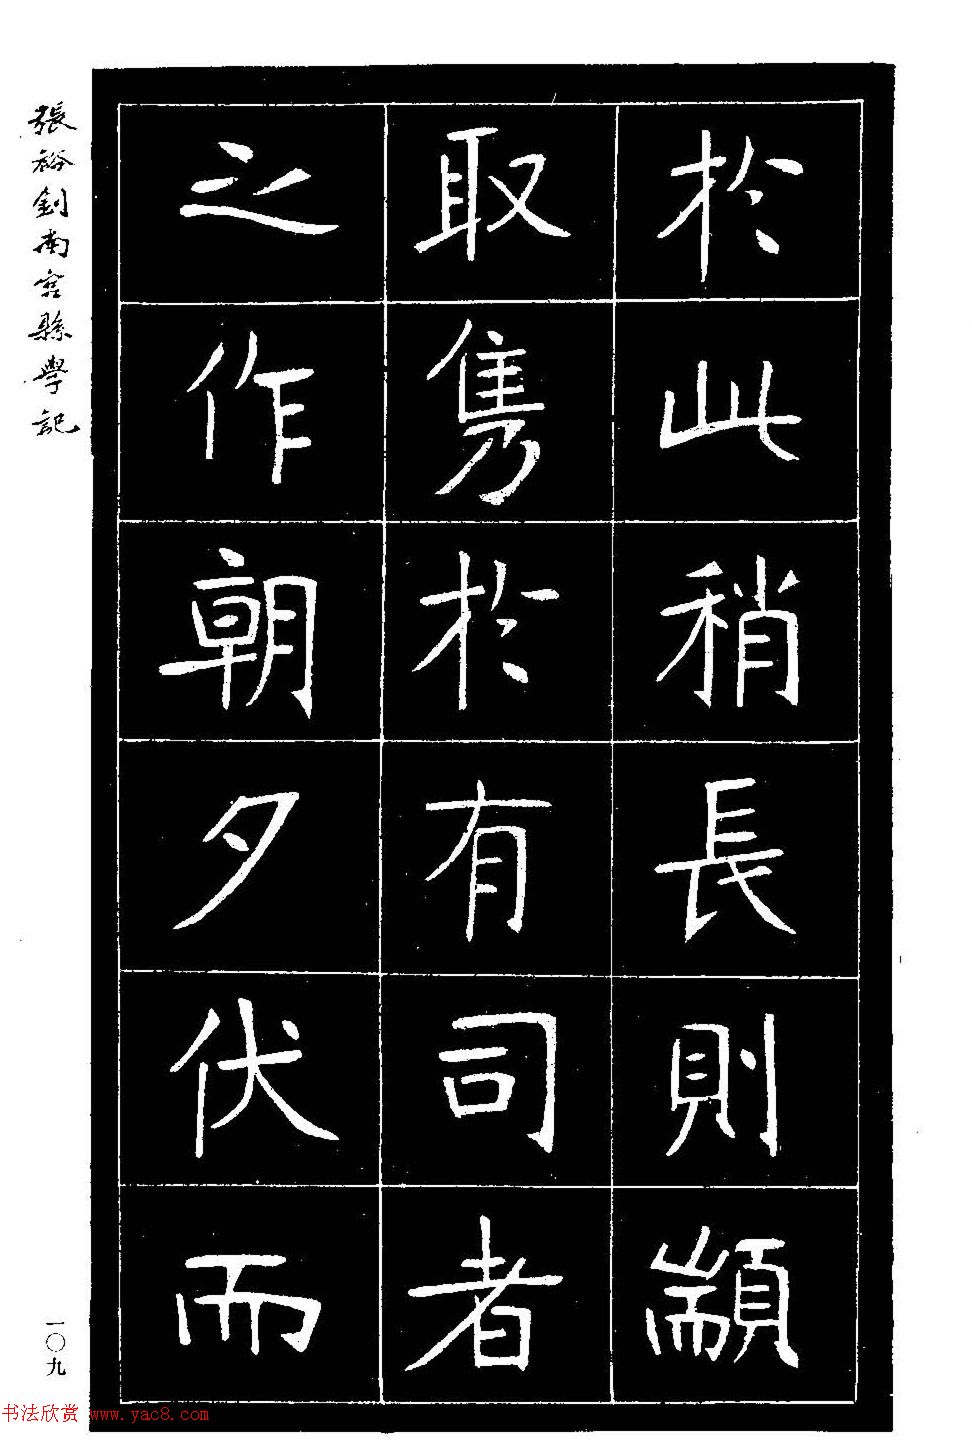 於此稍長則顓
取雋於有司者
之作朝夕伏而
張裕釗南宮縣學記
一〇九
书法欣赏 www.yac8.com